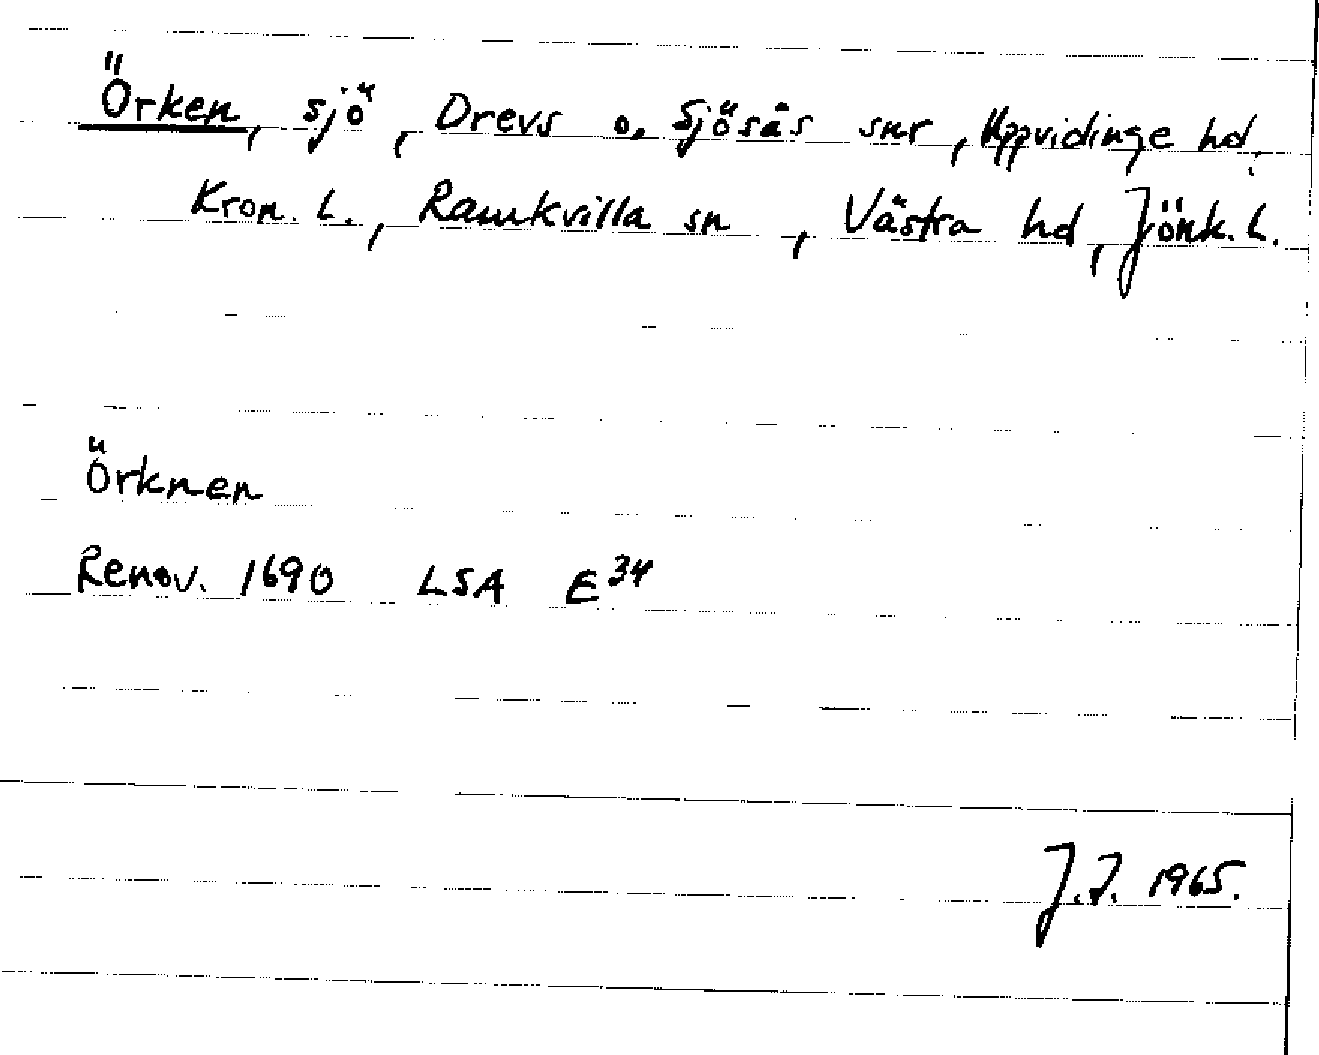 Örken, sjö, Drevs o. Sjösås snr, Uppvidinge hd,
Kron. L., Ramkvilla sn, Västra hd, Jönk. L.
Örknen
Renov. 1690 LSA E34
J.I. 1965.